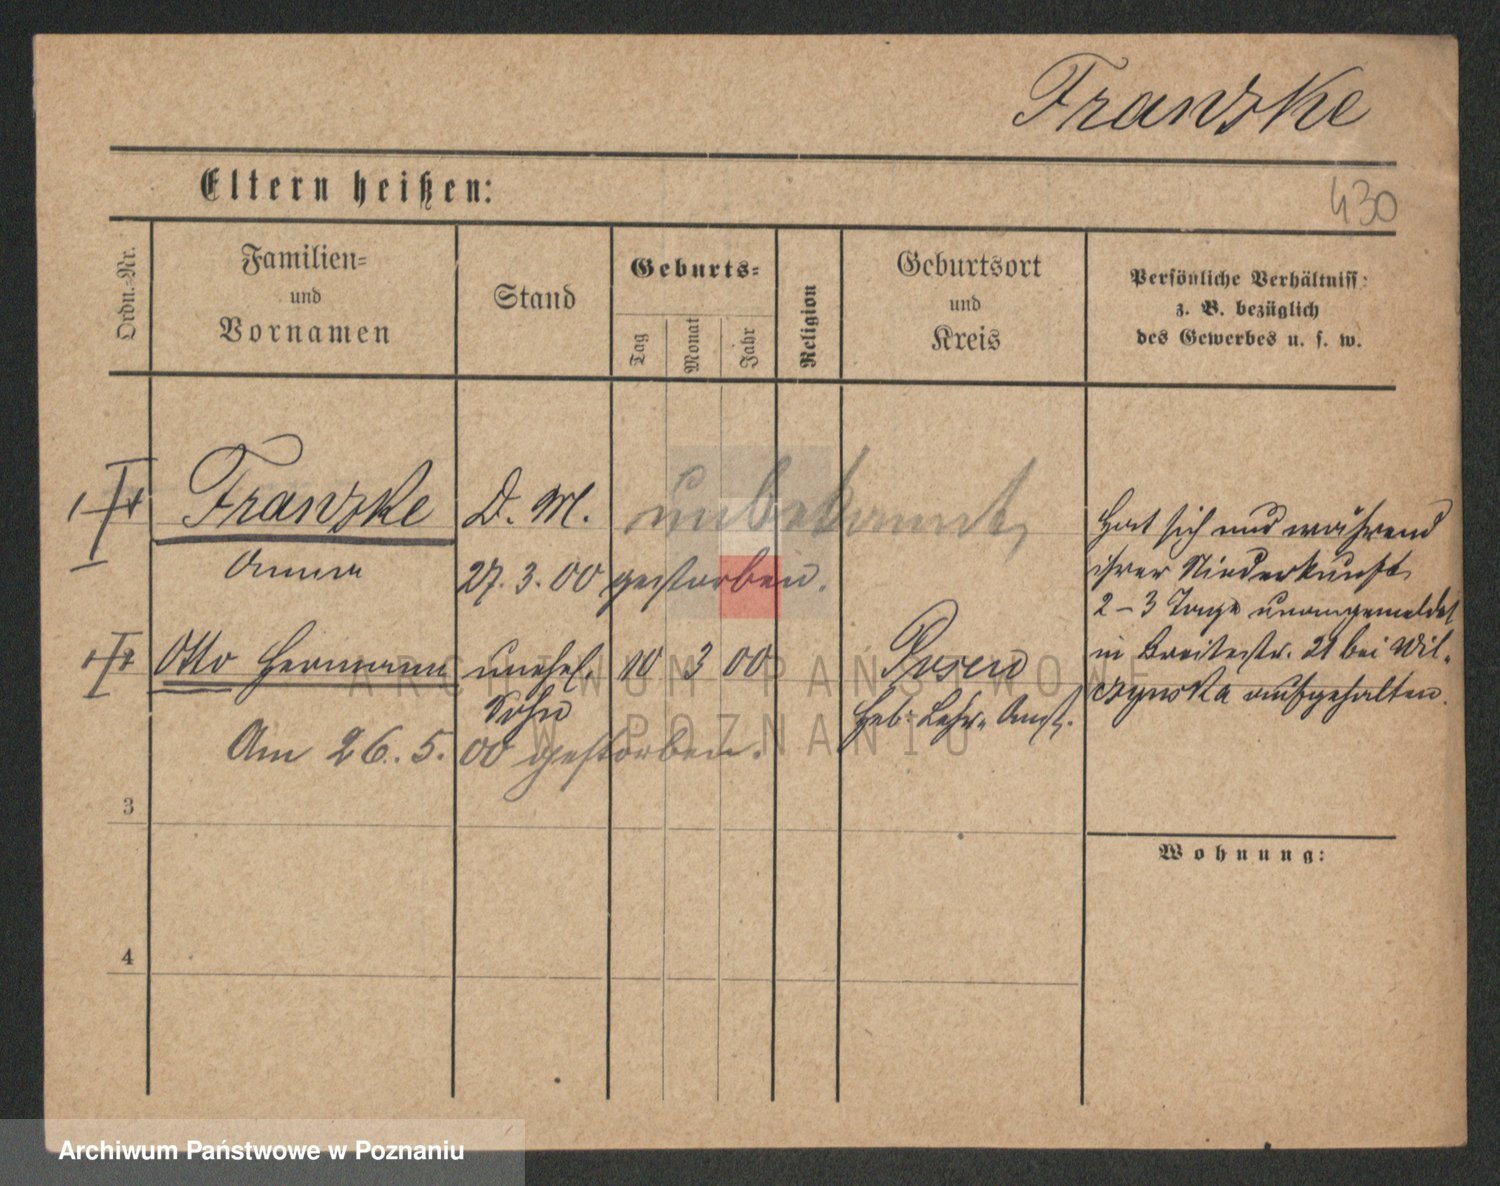 Franzke
Eltern heißen:
430
Ordn.-Nr.
Familien-
und
Vornamen
Stand
Geburts-
Tag
Monat
Jahr
Religion
Geburtsort
und
Kreis
Persönliche Verhältniss:
z. B. bezüglich
des Gewerbes u. s. w.
1
Franzke
D. M.
unbekannt,
Anna
27. 3. 00 gestorben.
Otto Hermann
unehel.
Sohn
10
3
00
Posen
Heb. Lehr. Anst.
Am 26. 5. 00 gestorben.
Hat sich nur während
ihrer Niederkunft
2-3 Tage unangemeldet
in Breitestr. 21 bei Wil-
czynska aufgehalten.
3
4
Wohnung:
ARCHIWUM PAŃSTWOWE
W POZNANIU
Archiwum Państwowe w Poznaniu